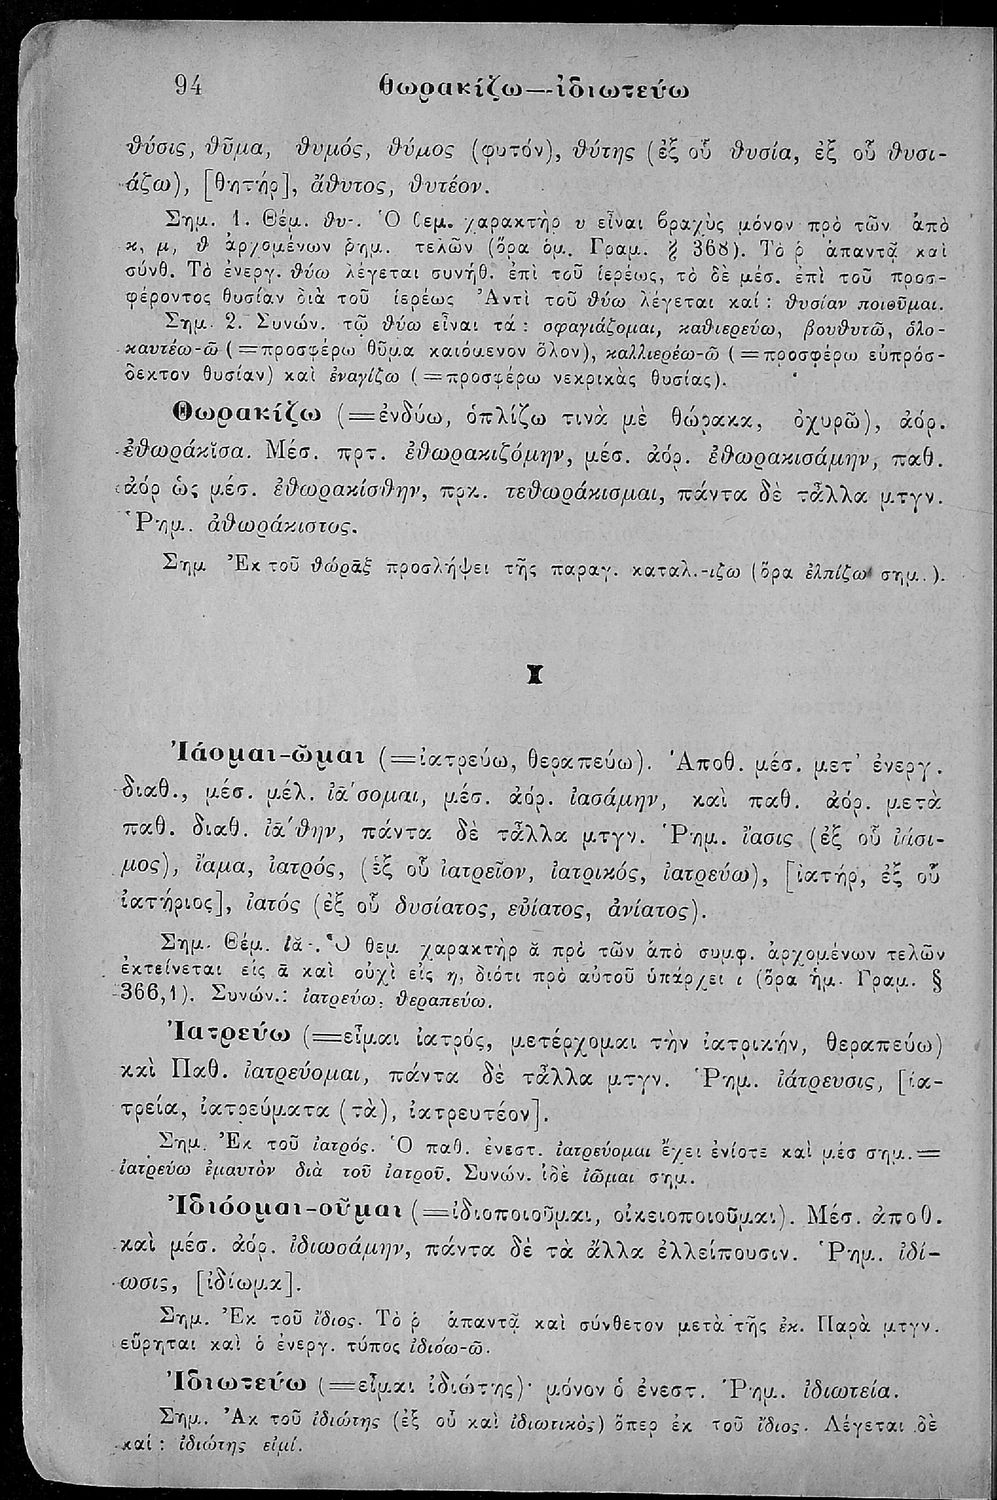 94 θωρακίζω—ἰδιωτεύω
θύσις, θῦμα, θυμός, θύμος (φυτόν), θύτης (ἐξ οὗ θυσία, ἐξ οὗ θυσι-
άζω), [θητήρ], ἄθυτος, θυτέον.
Σημ. 1. Θέμ. θυ-. Ὁ θεμ. χαρακτὴρ υ εἶναι βραχὺς μόνον πρὸ τῶν ἀπὸ
κ, μ, θ ἀρχομένων ῥημ. τελῶν (ὅρα ὁμ. Γραμ. § 368). Τὸ ῥ ἀπαντᾷ καὶ
σύνθ. Τὸ ἐνεργ. θύω λέγεται συνήθ. ἐπὶ τοῦ ἱερέως, τὸ δὲ μέσ. ἐπὶ τοῦ προσ-
φέροντος θυσίαν διὰ τοῦ ἱερέως Ἀντὶ τοῦ θύω λέγεται καί : θυσίαν ποιοῦμαι.
Σημ. 2. Συνών. τῷ θύω εἶναι τά : σφαγιάζομαι, καθιερεύω, βουθυτῶ, ὁλο-
καυτέω-ῶ (=προσφέρω θῦμα καιόμενον ὅλον), καλλιερέω-ῶ (=προσφέρω εὐπρόσ-
δεκτον θυσίαν) καὶ ἐναγίζω (=προσφέρω νεκρικὰς θυσίας).
Θωρακίζω (=ἐνδύω, ὁπλίζω τινὰ μὲ θώρακα, ὀχυρῶ), ἀόρ.
ἐθωράκῐσα. Μέσ. πρτ. ἐθωρακιζόμην, μέσ. ἀόρ. ἐθωρακισάμην, παθ.
ἀόρ ὡς μέσ. ἐθωρακίσθην, πρκ. τεθωράκισμαι, πάντα δὲ τἆλλα μτγν.
Ῥημ. ἀθωράκιστος.
Σημ Ἐκ τοῦ θώρᾱξ προσλήψει τῆς παραγ. καταλ.-ιζω (ὅρα ἐλπίζω σημ.).
Ι
Ἰάομαι-ῶμαι (=ἰατρεύω, θεραπεύω). Ἀποθ. μέσ. μετ' ἐνεργ.
διαθ., μέσ. μέλ. ἰᾱ́σομαι, μέσ. ἀόρ. ἰασάμην, καὶ παθ. ἀόρ. μετὰ
παθ. διαθ. ἰᾱ́θην, πάντα δὲ τἆλλα μτγν. Ῥημ. ἴασις (ἐξ οὗ ἰάσι-
μος), ἴαμα, ἰατρός, (ἐξ οὗ ἰατρεῖον, ἰατρικός, ἰατρεύω), [ἰατήρ, ἐξ οὗ
ἰατήριος], ἰατός (ἐξ οὗ δυσίατος, εὐίατος, ἀνίατος).
Σημ. Θέμ. ἰᾰ-. Ὁ θεμ χαρακτὴρ ᾰ πρὸ τῶν ἀπὸ συμφ. ἀρχομένων τελῶν
ἐκτείνεται εἰς ᾱ καὶ οὐχὶ εἰς η, διότι πρὸ αὐτοῦ ὑπάρχει ι (ὅρα ἡμ. Γραμ. §
366,1). Συνών.: ἰατρεύω, θεραπεύω.
Ἰατρεύω (=εἶμαι ἰατρός, μετέρχομαι τὴν ἰατρικήν, θεραπεύω)
καὶ Παθ. ἰατρεύομαι, πάντα δὲ τἆλλα μτγν. Ῥημ. ἰάτρευσις, [ἰα-
τρεία, ἰατρεύματα (τὰ), ἰατρευτέον].
Σημ. Ἐκ τοῦ ἰατρός. Ὁ παθ. ἐνεστ. ἰατρεύομαι ἔχει ἐνίοτε καὶ μέσ σημ.=
ἰατρεύω ἐμαυτὸν διὰ τοῦ ἰατροῦ. Συνών. ἰδὲ ἰῶμαι σημ.
Ἰδιόομαι-οῦμαι (=ἰδιοποιοῦμαι, οἰκειοποιοῦμαι). Μέσ. ἀποθ.
καὶ μέσ. ἀόρ. ἰδιωσάμην, πάντα δὲ τὰ ἄλλα ἐλλείπουσιν. Ῥημ. ἰδί-
ωσις, [ἰδίωμα].
Σημ. Ἐκ τοῦ ἴδιος. Τὸ ῥ ἀπαντᾷ καὶ σύνθετον μετὰ τῆς ἐκ. Παρὰ μτγν.
εὕρηται καὶ ὁ ἐνεργ. τύπος ἰδιόω-ῶ.
Ἰδιωτεύω (=εἶμαι ἰδιώτης)· μόνον ὁ ἐνεστ. Ῥημ. ἰδιωτεία.
Σημ. Ἀκ τοῦ ἰδιώτης (ἐξ οὗ καὶ ἰδιωτικὸς) ὅπερ ἐκ τοῦ ἴδιος. Λέγεται δὲ
καί : ἰδιώτης εἰμί.